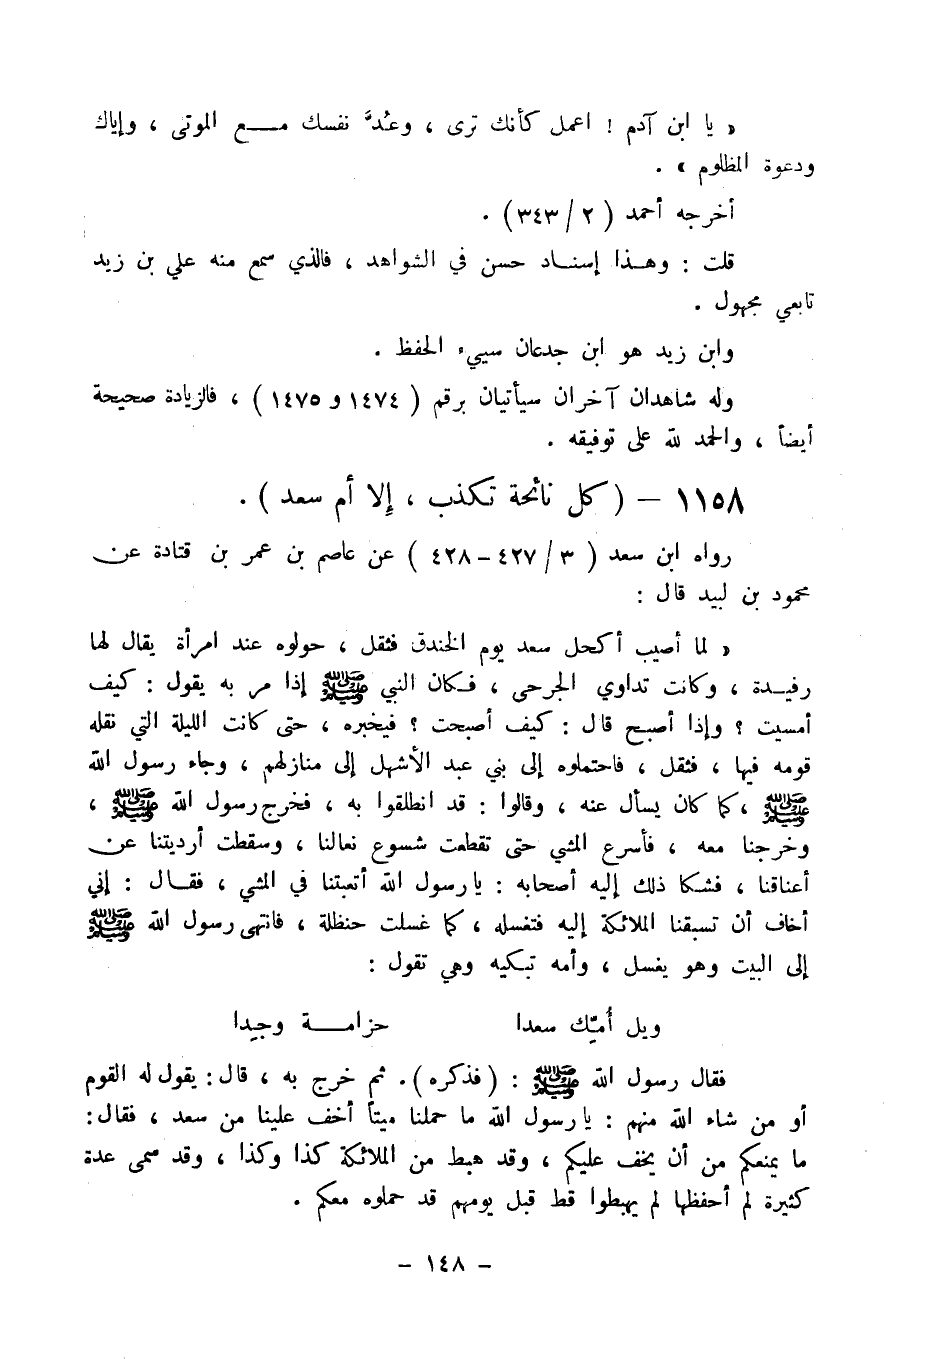 « يا ابن آدم ! اعمل كأنك ترى ، وعُدَّ نفسك مـــع الموتى ، وإياك
ودعوة المظلوم » .
أخرجه أحمد ( ٢ / ٣٤٣) .
قلت : وهـذا إسنـاد حسن في الشواهد ، فالذي سمع منه علي بن زيد
تابعي مجهول .
وابن زيد هو ابن جدعان سييء الحفظ .
وله شاهدان آخران سيأتيان برقم ( ١٤٧٤ و ١٤٧٥ ) ، فالزيادة صحيحة
أيضاً ، والحمد لله على توفيقه .
١١٥٨ – ( كل نائحة تكذب ، إلا أم سعد ) .
رواه ابن سعد ( ٣ / ٤٢٧ – ٤٢٨ ) عن عاصم بن عمر بن قتادة عن
محمود بن لبيد قال :
« لما أصيب أكحل سعد يوم الخندق فثقل ، حولوه عند امرأة يقال لها
رفيـدة ، وكانت تداوي الجرحى ، فـكان النبي ﷺ إذا مر به يقول : كيف
أمسيت ؟ وإذا أصبـح قال : كيف أصبحت ؟ فيخبره ، حتى كانت الليلة التي نقله
قومه فيها ، فثقل ، فاحتملوه إلى بني عبد الأشهل إلى منازلهم ، وجاء رسول الله
ﷺ ، كما كان يسأل عنه ، وقالوا : قد انطلقوا به ، فخرج رسول الله ﷺ ،
وخرجنا معه ، فأسرع المشي حتى تقطعت شسوع نعالنا ، وسقطت أرديتنا عن
أعناقنا ، فشكا ذلك إليه أصحابه : يا رسول الله أتعبتنا في المشي ، فقـال : إني
أخاف أن تسبقنا الملائكة إليه فتغسله ، كما غسلت حنظلة ، فانتهى رسول الله ﷺ
إلى البيت وهو يغسل ، وأمه تبكيه وهي تقول :
ويل أُمِّك سعدا حزامـــة وجيدا
فقال رسول الله ﷺ : ( فذكره ) . ثم خرج به ، قال : يقول له القوم
أو من شاء الله منهم : يا رسول الله ما حملنا ميتاً أخف علينا من سعد ، فقال :
ما يمنعكم من أن يخف عليكم ، وقد هبط من الملائكة كذا وكذا ، وقد سمى عدة
كثيرة لم أحفظها لم يهبطوا قط قبل يومهم قد حملوه معكم .
– ١٤٨ –